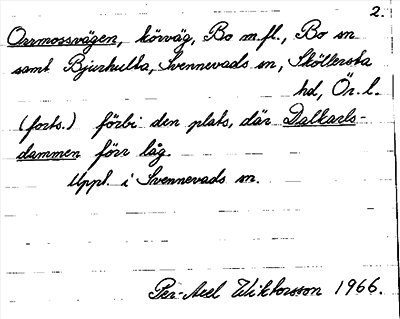 2.
Orrmossvägen, körväg, Bo m.fl., Bo sn
samt Bjurhulta, Svennevads sn, Sköllersta
hd, Ör. l.
(forts.) förbi den plats, där Dalkarls-
dammen förr låg.
Uppl. i Svennevads sn.
Per-Axel Wiktorsson 1966.